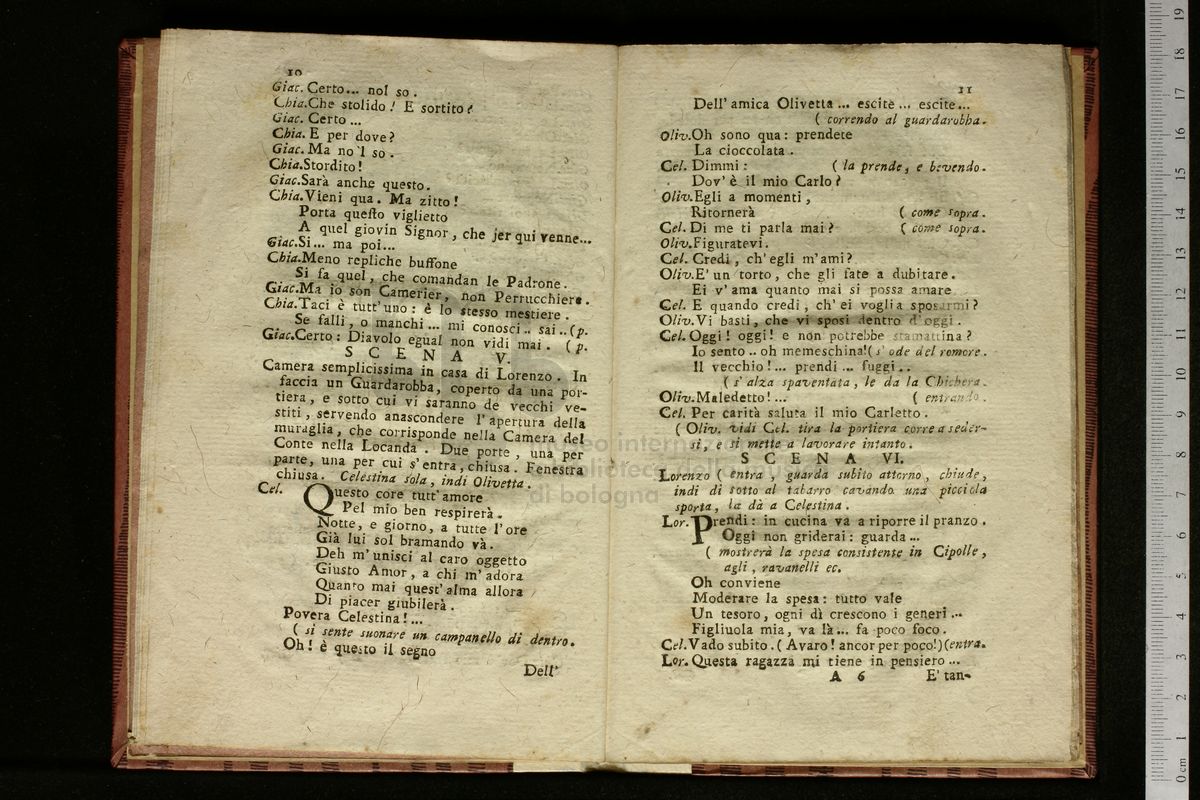 10
Giac. Certo... nol so.
Chia. Che stolido! E sortito?
Giac. Certo ...
Chia. E per dove?
Giac. Ma no'l so.
Chia. Stordito!
Giac. Sarà anche questo.
Chia. Vieni qua. Ma zitto!
Porta questo viglietto
A quel giovin Signor, che jer qui venne...
Giac. Si... ma poi...
Chia. Meno repliche buffone
Si fa quel, che comandan le Padrone.
Giac. Ma io son Camerier, non Perrucchiere.
Chia. Taci è tutt'uno: è lo stesso mestiere.
Se falli, o manchi... mi conosci.. sai.. (p.
Giac. Certo: Diavolo egual non vidi mai. (p.
SCENA V.
Camera semplicissima in casa di Lorenzo. In
faccia un Guardarobba, coperto da una por-
tiera, e sotto cui vi saranno de vecchi ve-
stiti, servendo anascondere l'apertura della
muraglia, che corrisponde nella Camera del
Conte nella Locanda. Due porte, una per
parte, una per cui s'entra, chiusa. Fenestra
chiusa. Celestina sola, indi Olivetta.
Cel. Questo core tutt'amore
Pel mio ben respirerà.
Notte, e giorno, a tutte l'ore
Già lui sol bramando và.
Deh m'unisci al caro oggetto
Giusto Amor, a chi m'adora
Quanto mai quest'alma allora
Di piacer giubilerà.
Povera Celestina!...
( si sente suonare un campanello di dentro.
Oh! è questo il segno
Dell'
11
Dell'amica Olivetta ... escite ... escite...
( correndo al guardarobba.
Oliv. Oh sono qua: prendete
La cioccolata.
Cel. Dimmi: ( la prende, e bevendo.
Dov'è il mio Carlo?
Oliv. Egli a momenti,
Ritornerà ( come sopra.
Cel. Di me ti parla mai? ( come sopra.
Oliv. Figuratevi.
Cel. Credi, ch'egli m'ami?
Oliv. E' un torto, che gli fate a dubitare.
Ei v'ama quanto mai si possa amare
Cel. E quando credi, ch'ei voglia sposarmi?
Oliv. Vi basti, che vi sposi dentro d'oggi.
Cel. Oggi! oggi! e non potrebbe stamattina?
Io sento .. oh memeschina! ( s'ode del romore.
Il vecchio!... prendi ... fuggi..
( s'alza spaventata, le da la Chichera.
Oliv. Maledetto!... ( entrando.
Cel. Per carità saluta il mio Carletto.
( Oliv. vidi Cel. tira la portiera corre a seder-
si, e si mette a lavorare intanto.
SCENA VI.
Lorenzo ( entra, guarda subito attorno, chiude,
indi di sotto al tabarro cavando una picciola
sporta, la dà a Celestina.
Lor. Prendi: in cucina va a riporre il pranzo.
Oggi non griderai: guarda ...
( mostrerà la spesa consistente in Cipolle,
agli, ravanelli ec.
Oh conviene
Moderare la spesa: tutto vale
Un tesoro, ogni dì crescono i generi...
Figliuola mia, va là... fa poco foco.
Cel. Vado subito. ( Avaro! ancor per poco!) (entra.
Lor. Questa ragazza mi tiene in pensiero ...
A 6 E' tan-
museo internaz
biblioteca della musica
di bologna
0 cm 1 2 3 4 5 6 7 8 9 10 11 12 13 14 15 16 17 18 19